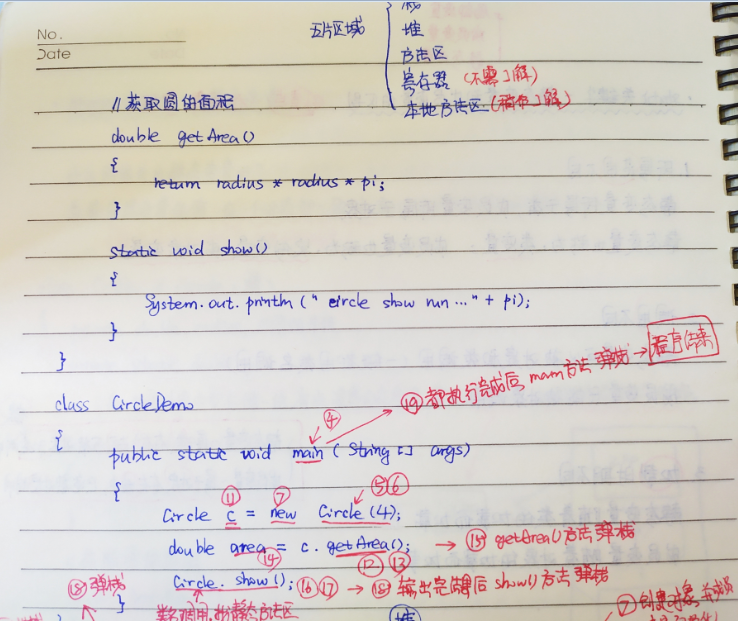 No.
Date
五片区域
栈
堆
方法区
寄存器 (不需了解)
本地方法区 (稍作了解)
// 获取圆的面积
double getArea()
{
return radius * radius * pi;
}
static void show()
{
System.out.println (" circle show run ..." + pi);
}
}
⑲都执行完成后, main方法弹栈 → 程序结束
class CircleDemo
④
{
public static void main ( String [] args)
{
⑪ ⑦ ⑤⑥
Circle c = new Circle (4);
double area = c. getArea(); → ⑮ getArea()方法弹栈
⑭ ⑫ ⑬
Circle. show(); ⑯⑰ → ⑱ 输出完毕后 show()方法弹栈
⑱ 弹栈
}
堆
⑦创建对象,